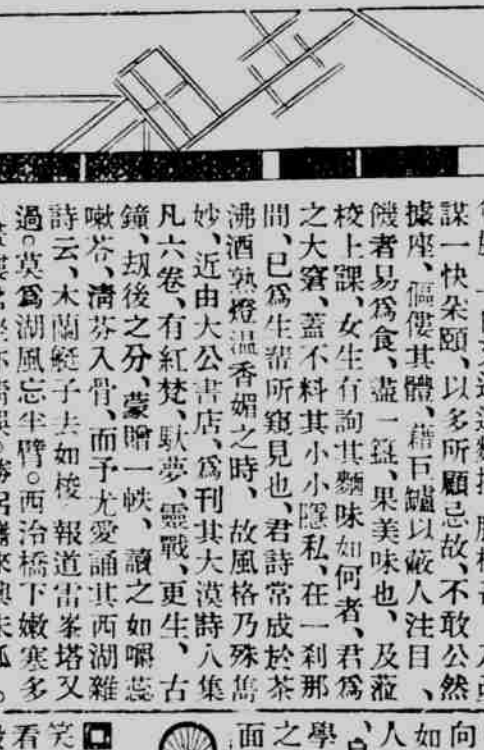 謀一快朵頤、以多所顧忌故、不敢公然
據座、傴僂其體、藉巨罏以蔽人注目、
饑者易爲食、盡一簋、果美味也、及蒞
校上課、女生有詢其麵味如何者、君爲
之大窘、蓋不料其小小隱私、在一刹那
間、已爲生輩所窺見也、君詩常成於茶
沸酒熟燈溫香媚之時、故風格乃殊雋
妙、近由大公書店、爲刊其大漠詩人集
凡六卷、有紅梵、馱夢、靈戰、更生、古
鐘、刼後之分、蒙贈一帙、讀之如嚼蕊
嗽芥、清芬入骨、而予尤愛誦其西湖雜
詩云、木蘭艇子去如梭 報道雷峯塔又
過。莫爲湖風忘半臂。西泠橋下嫩寒多
向
如
人
學
之
面
笑
看